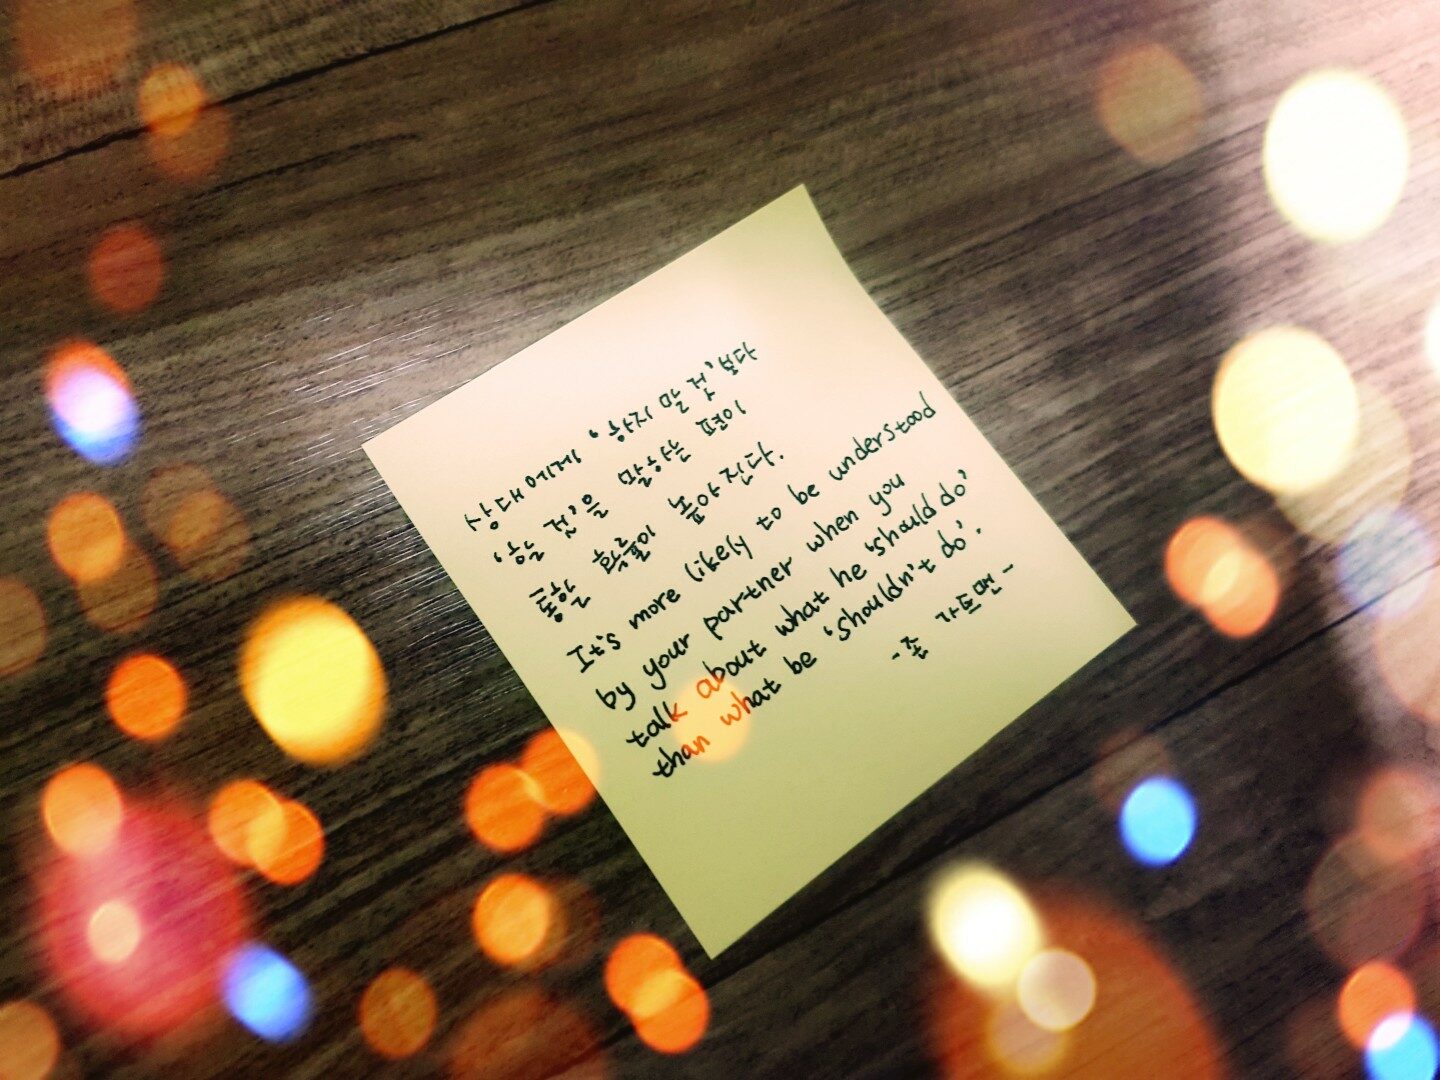 상대에게 '하지 말 것'보다
'하는 것'을 말하는 편이
통할 확률이 높아진다.
It's more likely to be understood
by your partner when you
talk about what he 'should do'
than what be 'shouldn't do'.
- 존 가트맨 -